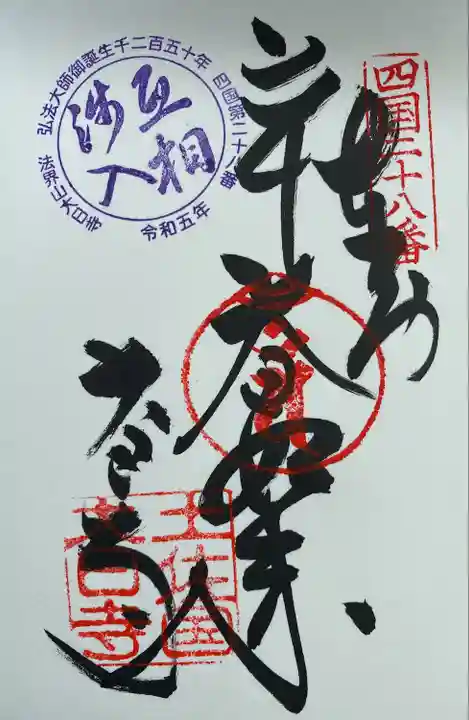 四国二十八番
奉納
大日如来
大日寺
土佐国
大日寺
弘法大師御誕生千二百五十年
四国第二十八番
互相
渉入
法界山大日寺
令和五年